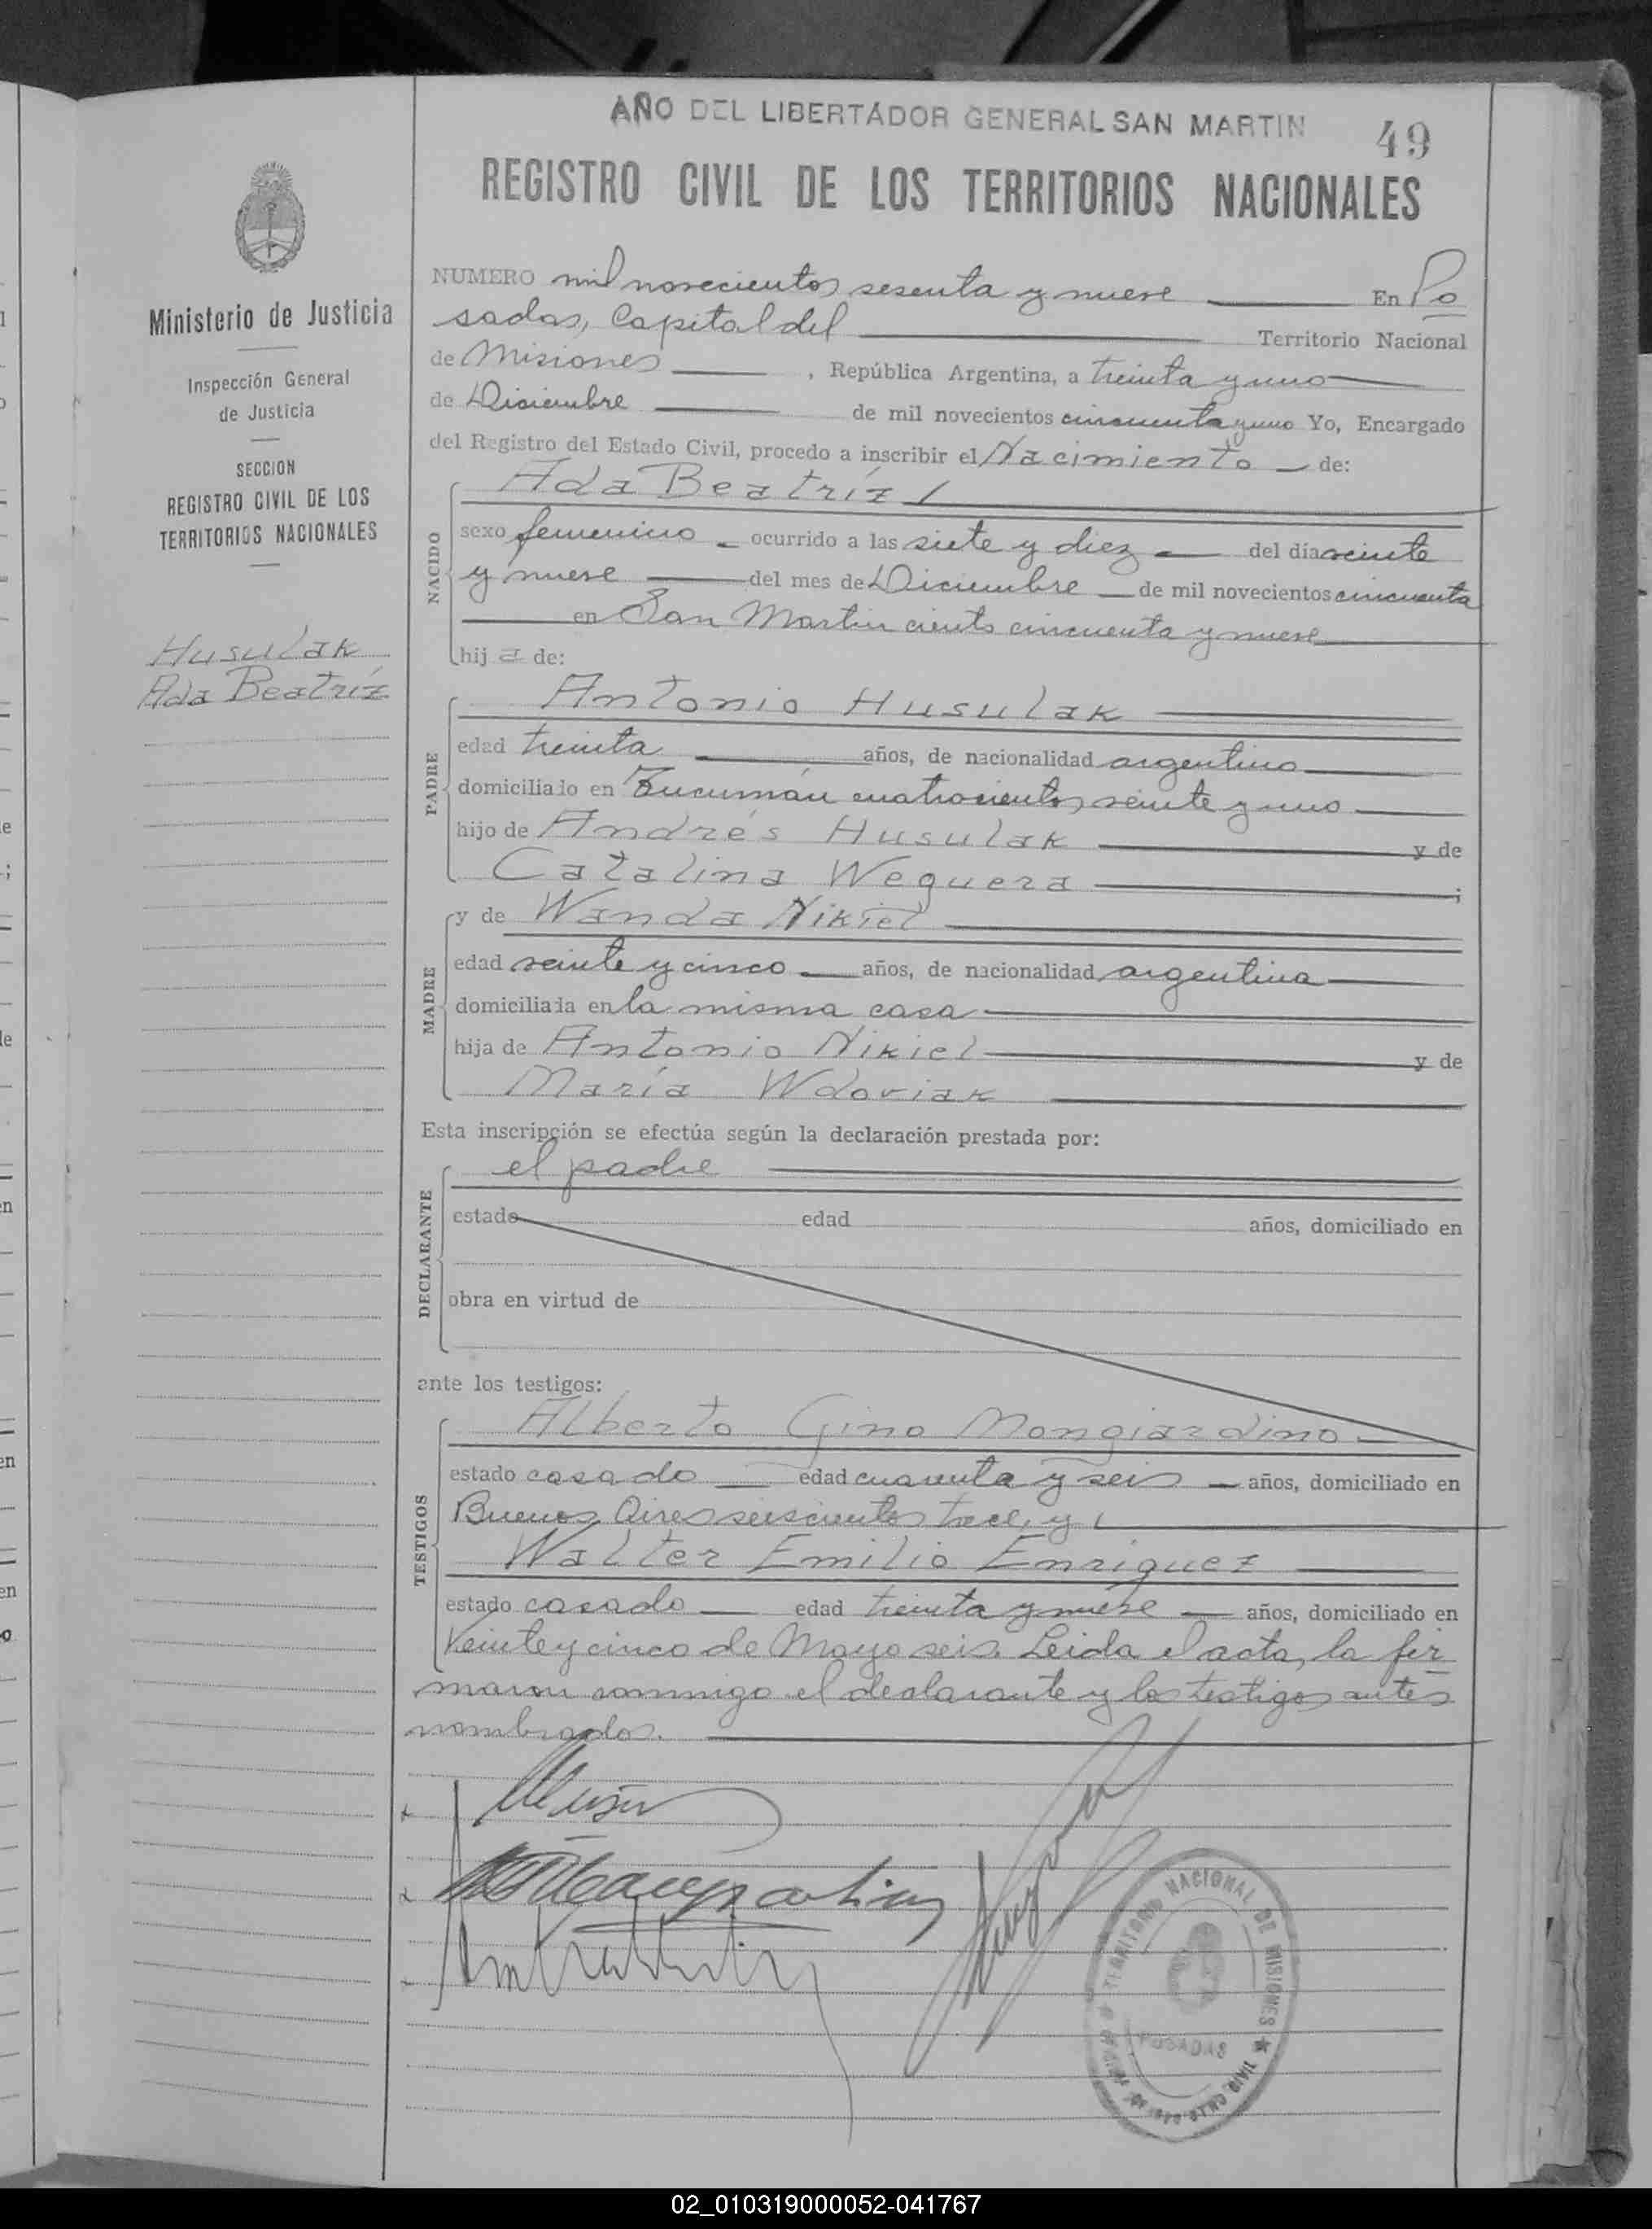 AÑO DEL LIBERTADOR GENERAL SAN MARTIN
49
REGISTRO CIVIL DE LOS TERRITORIOS NACIONALES
Ministerio de Justicia
Inspección General
de Justicia
SECCION
REGISTRO CIVIL DE LOS
TERRITORIOS NACIONALES
Husulak
Ada Beatríz
NUMERO mil novecientos sesenta y nueve En Po
sadas, Capital del Territorio Nacional
de Misiones, República Argentina, a treinta y uno
de Diciembre de mil novecientos cincuenta y uno Yo, Encargado
del Registro del Estado Civil, procedo a inscribir el Nacimiento de:
NACIDO
Ada Beatríz
sexo femenino ocurrido a las siete y diez del día veinte
y nueve del mes de Diciembre de mil novecientos cincuenta
en San Martin ciento cincuenta y nueve
hij a de:
PADRE
Antonio Husulak
edad treinta años, de nacionalidad argentino
domiciliado en Tucumán cuatrocientos veinte y uno
hijo de Andrés Husulak y de
Catalina Weguera;
MADRE
y de Wanda Nikiel
edad veinte y cinco años, de nacionalidad argentina
domiciliada en la misma casa
hija de Antonio Nikiel y de
María Wdoviak
Esta inscripción se efectúa según la declaración prestada por:
DECLARANTE
el padre
estado edad años, domiciliado en
obra en virtud de
ante los testigos:
TESTIGOS
Alberto Gino Mongiardino
estado casado edad cuarenta y seis años, domiciliado en
Buenos Aires seiscientos trece, y
Walter Emilio Enriquez
estado casado edad treinta y nueve años, domiciliado en
Veinte y cinco de Mayo seis. Leida el acta, la fir
maron conmigo el declarante y los testigos antes
nombrados.
TERRITORIO NACIONAL DE MISIONES
POSADAS
02_010319000052-041767